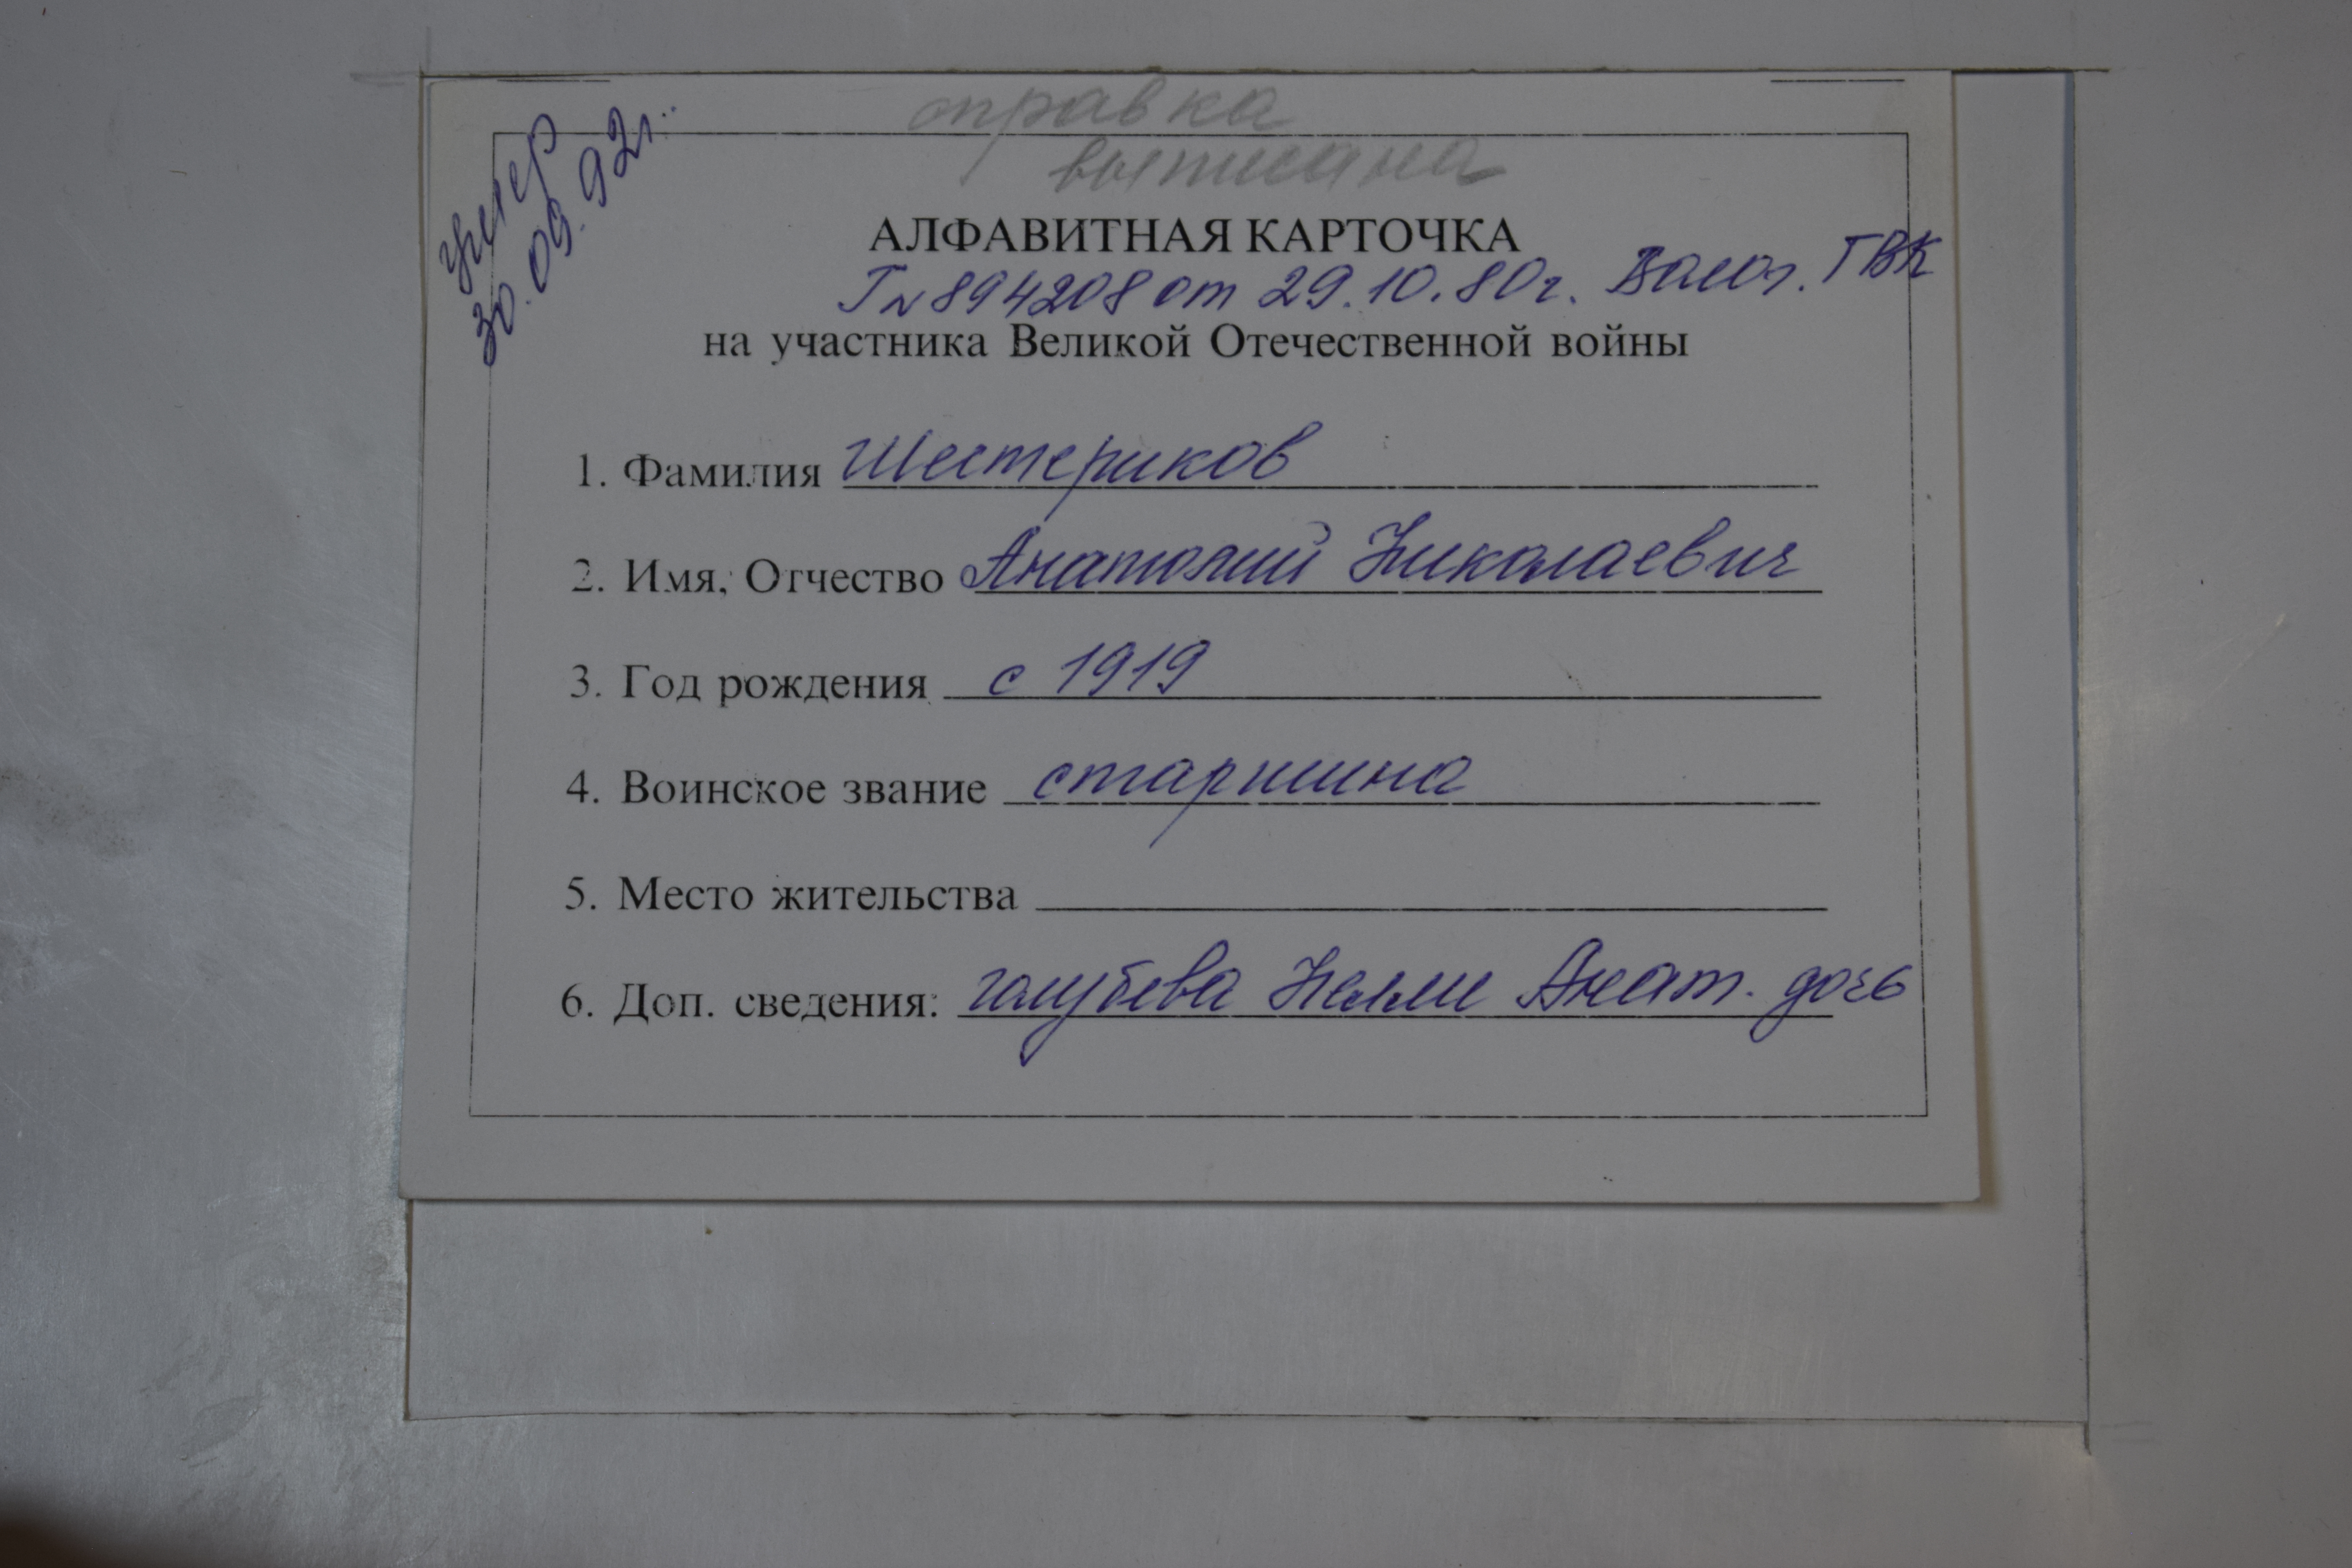 справка
выписана
умер
30.09.92г.
АЛФАВИТНАЯ КАРТОЧКА
Г №894208 от 29.10.80г. Волог. ГВК
на участника Великой Отечественной войны
1. Фамилия Шестериков
2. Имя, Отчество Анатолий Николаевич
3. Год рождения с 1919
4. Воинское звание старшина
5. Место жительства
6. Доп. сведения: голубева Нелли Анат. дочь